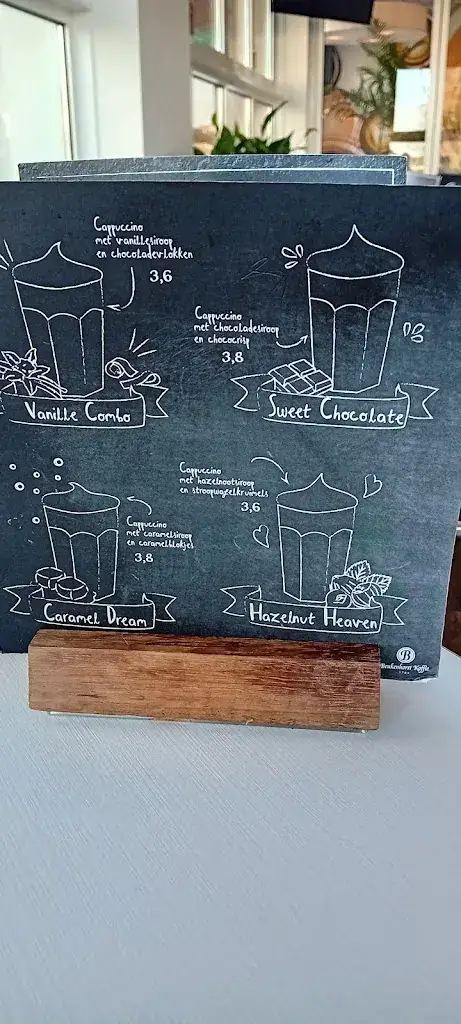 Cappuccino
met vanillesiroop
en chocoladevlokken
3,6
Vanille Combo
Cappuccino
met chocoladesiroop
en chococrisp
3,8
Sweet Chocolate
Cappuccino
met caramelsiroop
en caramelblokjes
3,8
Caramel Dream
Cappuccino
met hazelnootsiroop
en stroopwafelkruimels
3,6
Hazelnut Heaven
B
Benkenhorst Koffie